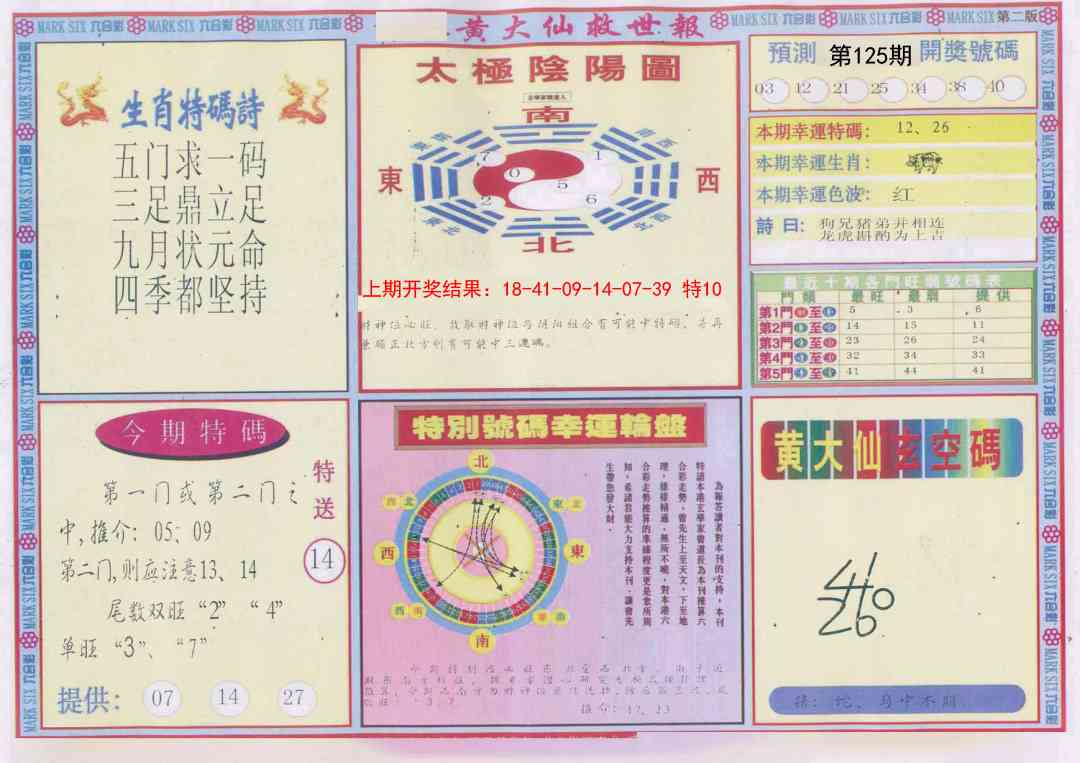 MARK SIX 六合彩 MARK SIX 六合彩 MARK SIX 六合彩
黄大仙救世報
MARK SIX 六合彩 MARK SIX 六合彩 MARK SIX 第二版
生肖特碼詩
五门求一码
三足鼎立足
九月状元命
四季都坚持
太極陰陽圖
南
東
西
北
7
1
0
5
2
6
上期开奖结果：18-41-09-14-07-39 特10
預測 第125期 開獎號碼
03 12 21 25 34 38 40
本期幸運特碼： 12、26
本期幸運生肖：
本期幸運色波： 红
詩曰： 狗兄猪弟并相连
龙虎斟酌为上吉
最近十期各門旺弱號碼表
門類 最旺 最弱 提供
第1門 至 5 3 6
第2門 至 14 15 11
第3門 至 23 26 24
第4門 至 32 34 33
第5門 至 41 44 41
今期特碼
第一门或第二门之
中,推介: 05; 09
第二门,则应注意13、14
尾数双旺“2” “4”
单旺“3”、“7”
特送
14
提供： 07 14 27
特別號碼幸運輪盤
北
西北
東北
西
東
南
為報答讀者對本刊的支持，本刊
特請本港玄學家曾道長為本刊推算六
合彩走勢，曾先生上至天文，下至地
理，樣樣精通，無所不曉，對本港六
合彩走勢推算的準確程度更是衆所周
知，希諸君能大力支持本刊，讓曾先
生帶您發大財．
推介: 17、23
黄大仙玄空碼
猪: 蛇、马中本期